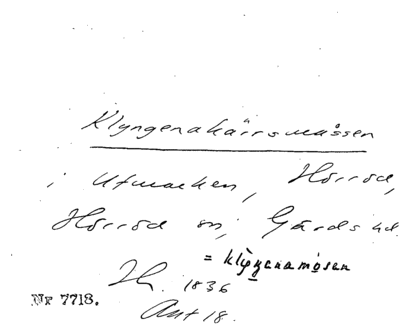 Klyngenakärrsmåssen
i Utmarken, Hörröd,
Hörröd sn, Gärds hd.
= klyngenamosen
1836
Nr 7718.
Akt 18.